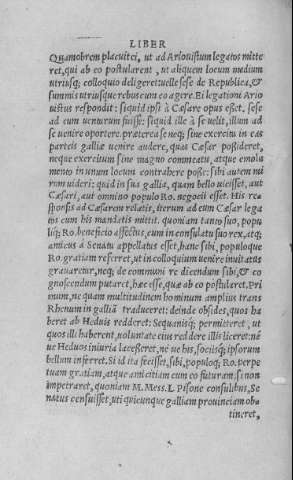 LIBER
Quamobrem placuit ei, ut ad Ariouistum legatos mitte
ret, qui ab eo postularent, ut aliquem locum medium
utriusq; colloquio deligeret: uelle sese de Republica, &
summis utriusque rebus cum eo agere. Ei legationi Ario
uistus respondit: siquid ipsi à Cæsare opus esset, sese
ad eum uenturum fuisse: siquid ille à se uelit, illum ad
se uenire oportere. præterea se neq; sine exercitu in eas
parteis galliæ uenire audere, quas Cæsar possideret,
neque exercitum sine magno commeatu, atque emola
mento in unum locum contrahere posse: sibi autem mi
rum uideri: quid in sua gallia, quam bello uicisset, aut
Cæsari, aut omnino populo Ro. negocii esset. His rea
sponsis ad Cæsarem relatis, iterum ad eum Cæsar lega
tos cum his mandatis mittit. quoniam tanto suo, popu
lisq; Ro. beneficio affectus, cum in consulatu suo rex, atq;
amicus à Senatu appellatus esset, hanc sibi, populoque
Ro. gratiam referret, ut in colloquium uenire inuitatus
grauaretur, neq; de communi re dicendum sibi, & co
gnoscendum putaret, hæc esse, quæ ab eo postularet. Pri
mum, ne quam multitudinem hominum amplius trans
Rhenum in galliã traduceret: deinde obsides, quos ha
beret ab Heduis redderet: Sequanisq; permitteret, ut
quos illi haberent, uoluntate eius reddere illis liceret: né
ue Heduos iniuria lacesseret, né ue his, sociisq; ipsorum
bellum inferret. Si id ita fecisset, sibi, populoq; Ro. perpe
tuam gratiam, atque amicitiam cum eo futuram: si non
impetraret, quoniam M. Mess. L. Pisone consulibus, Se
natus censuisset, uti quicunque galliam prouinciam oba
tineret,